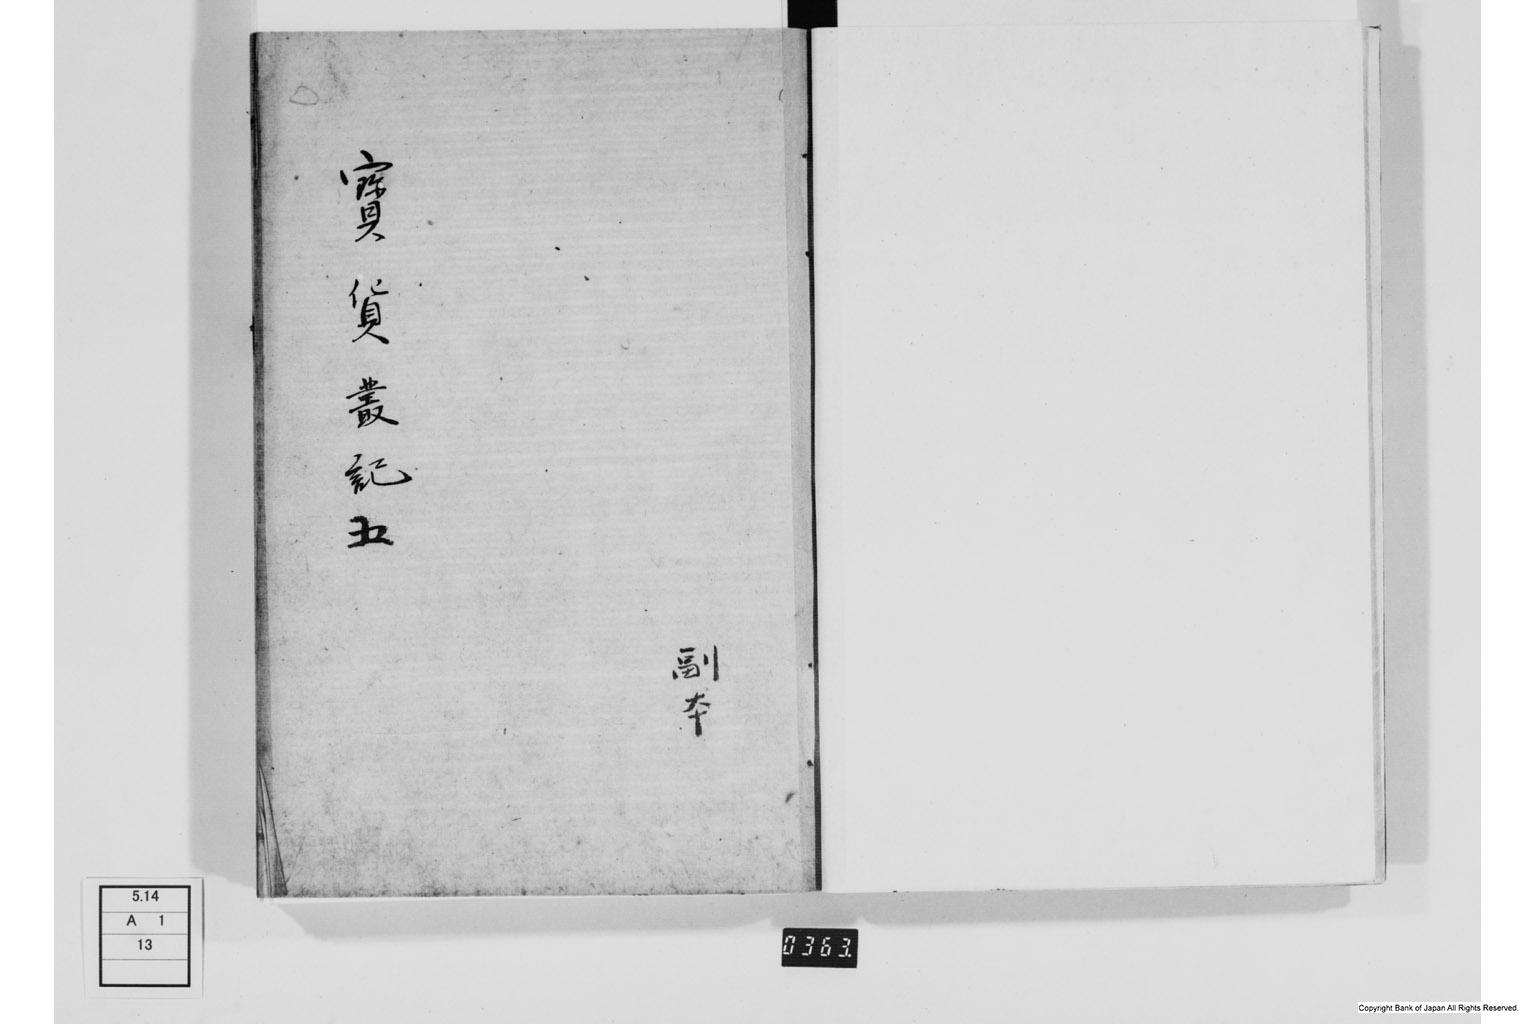 副本
寳貨叢記五
5.14
A 1
13
0363.
Copyright Bank of Japan All Rights Reserved.